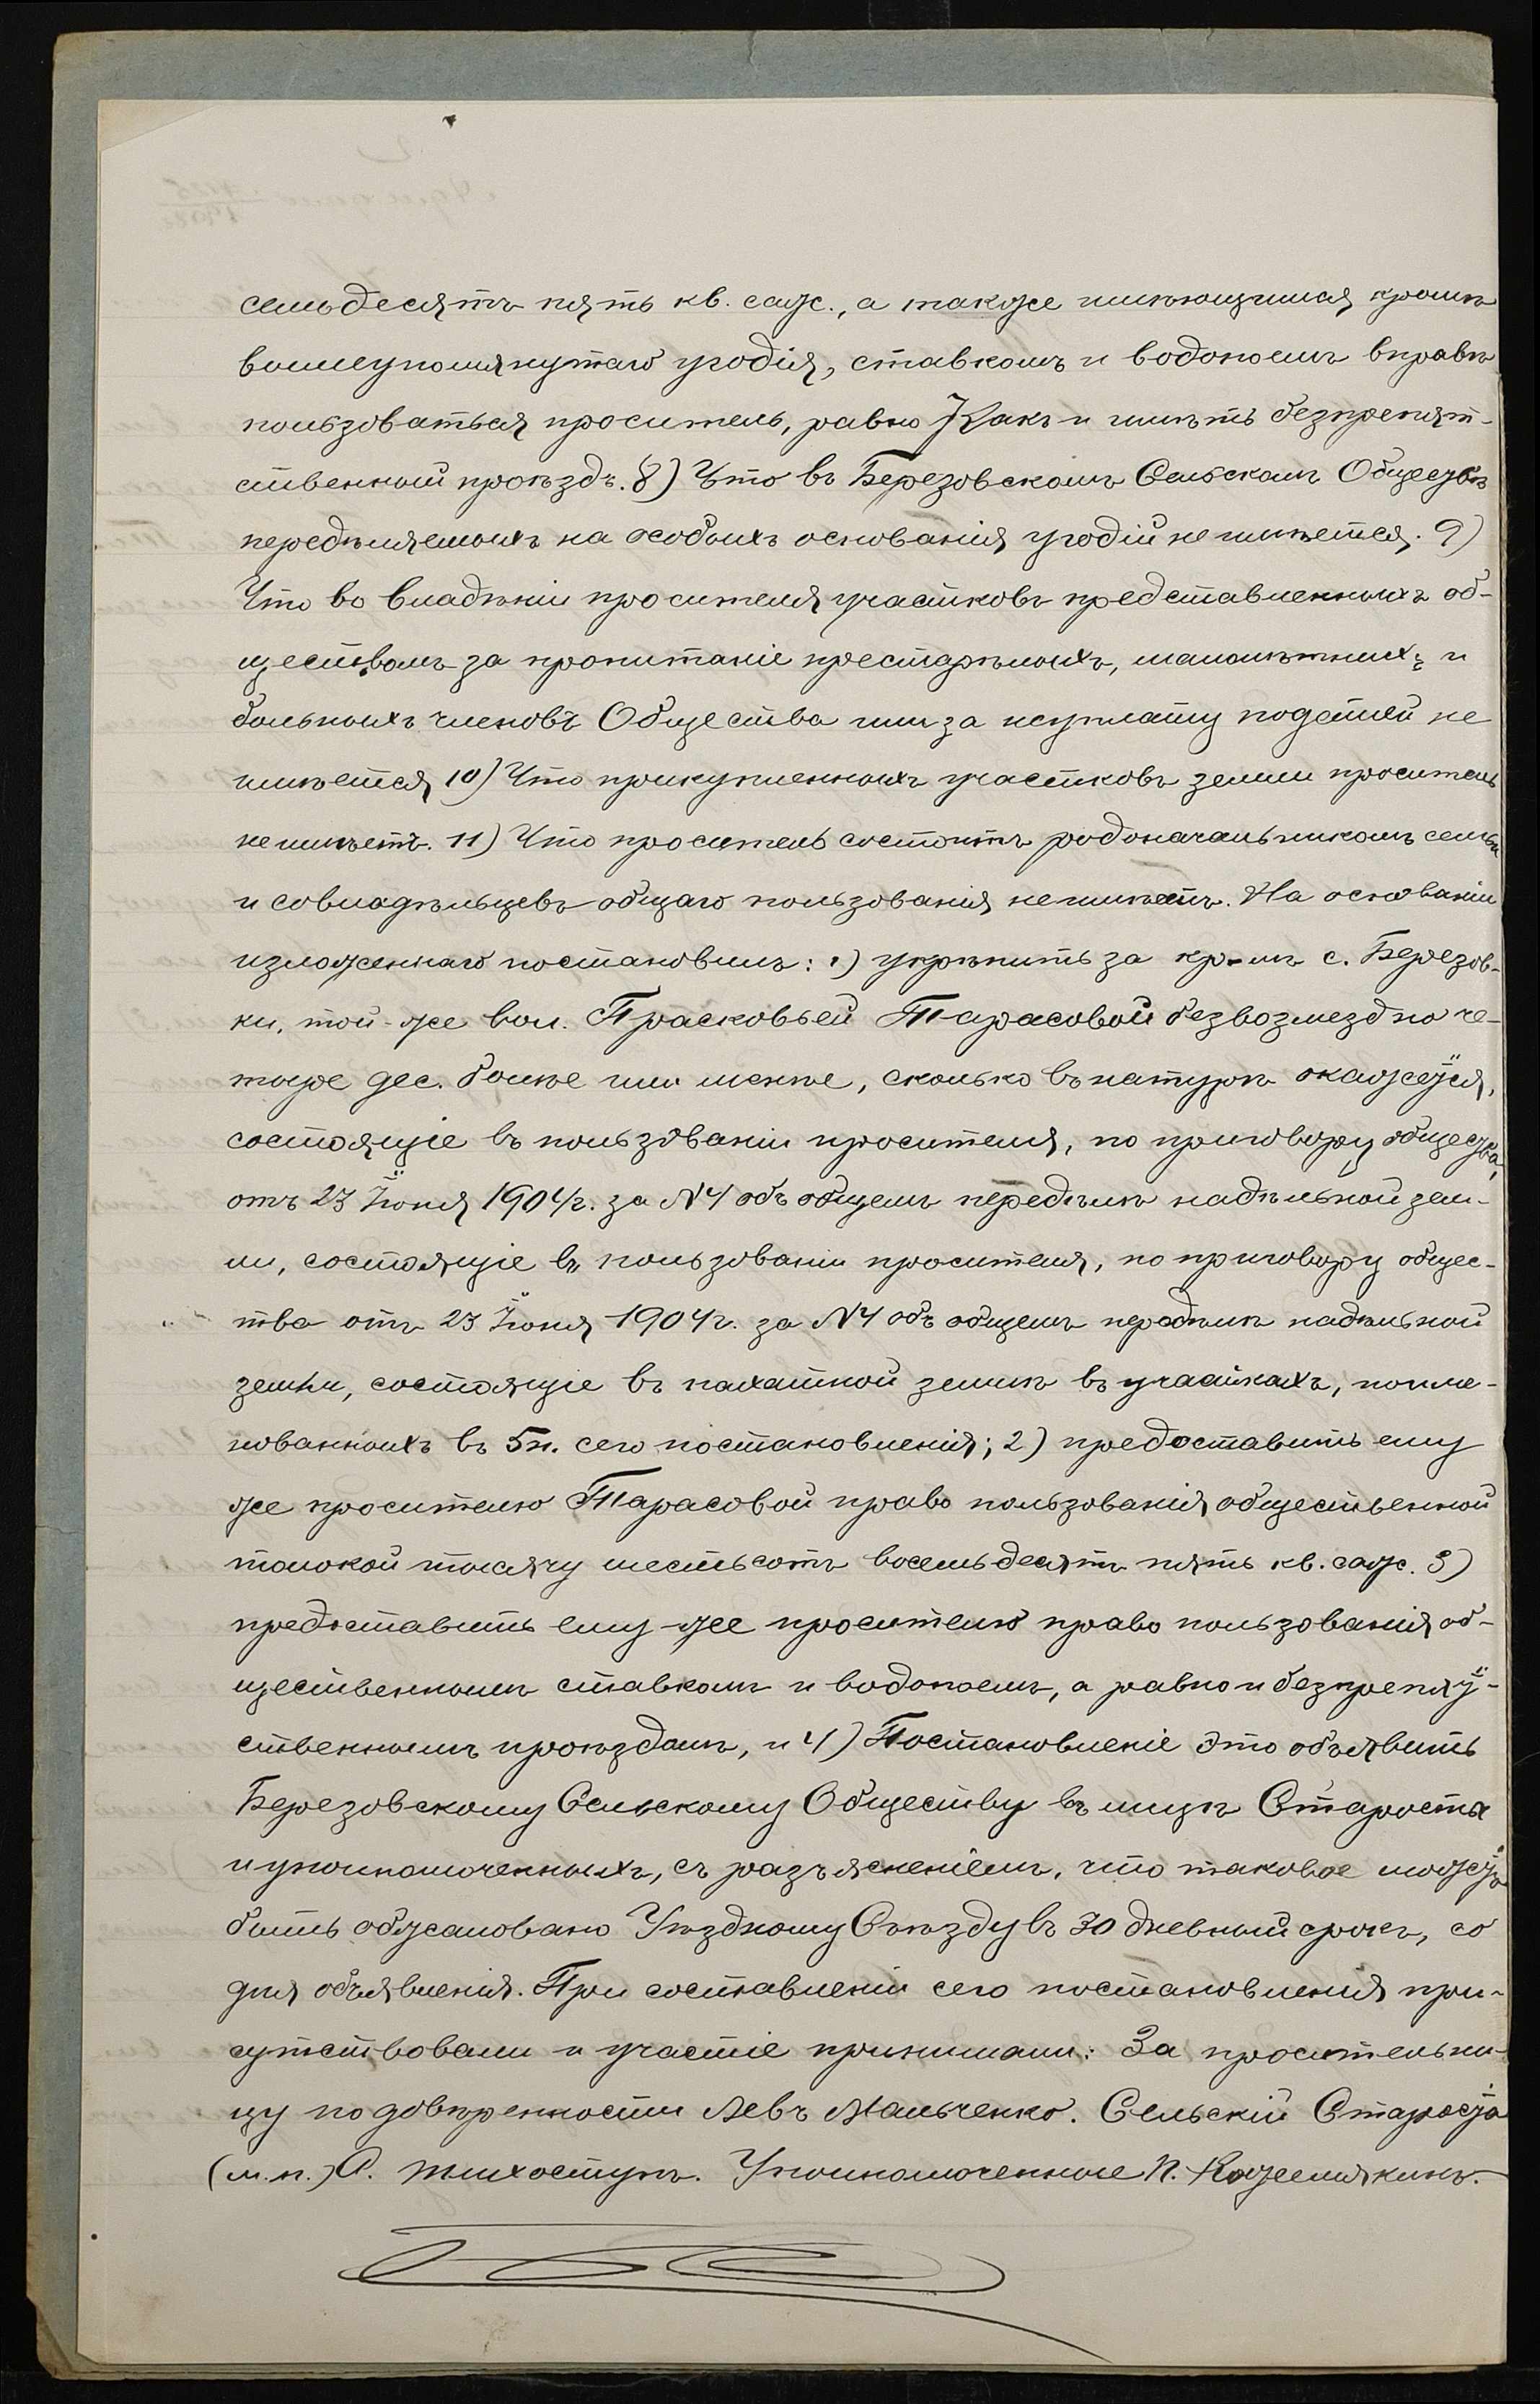 семьдесятъ пять кв. саж., а также имѣющимся кромѣ
вышеупомянутаго угодія, ставкомъ и водопоемъ вправѣ
пользоваться проситель, равно какъ и имѣть безпрепят-
ственный проѣздъ. 8) Что въ Березовскомъ Сельскомъ Обществѣ
передѣляемыхъ на особыхъ основанія угодій не имѣется. 9)
Что во владѣніи просителя участковъ представленныхъ об-
ществомъ за пропитаніе престарѣлыхъ, малолѣтнихъ и
больныхъ членовъ Общества или за неуплату податей не
имѣется 10) Что прикупленныхъ участковъ земли проситель
не имѣетъ. 11) Что проситель состоитъ родоначальникомъ семьи
и совладѣльцевъ общаго пользованія не имѣетъ. На основаніи
изложеннаго постановилъ: 1) укрѣпить за кр-мъ с. Березов-
ки, той-же вол. Прасковьей Тарасовой безвозмездно че-
тыре дес. болѣе или менѣе, сколько въ натурѣ окажется,
состоящіе въ пользованіи просителя, по приговору общества,
отъ 23 Іюня 1904 г. за №4 объ общемъ передѣлѣ надѣльной зем-
ли, состоящіе въ пользованіи просителя, по приговору общес-
тва отъ 23 Іюня 1904 г. за №4 объ общемъ передѣлѣ надѣльной
земли, состоящіе въ пахатной землѣ въ участкахъ, поиме-
нованныхъ въ 5 п. сего постановленія; 2) предоставить ему
же просителю Тарасовой право пользованія общественной
толокой тысячу шестьсотъ восемьдесятъ пять кв. саж. 3)
предоставить ему-же просителю право пользованія об-
щественнымъ ставкомъ и водопоемъ, а равно и безпрепят-
ственнымъ проѣздомъ, и 4) Постановленіе это объявить
Березовскому Сельскому Обществу въ лицѣ Старосты
и уполномоченныхъ, съ разъясненіемъ, что таковое можетъ
быть обжаловано Уѣздному Съѣзду въ 30 дневный срокъ, со
дня объявленія. При составленіи сего постановленія при-
сутствовали и участіе принимали: За просительни-
цу по довѣренности Левъ Мальченко. Сельскій Староста
(м.п.) А. Тихоступъ. Уполномоченные П. Кожемякинъ.